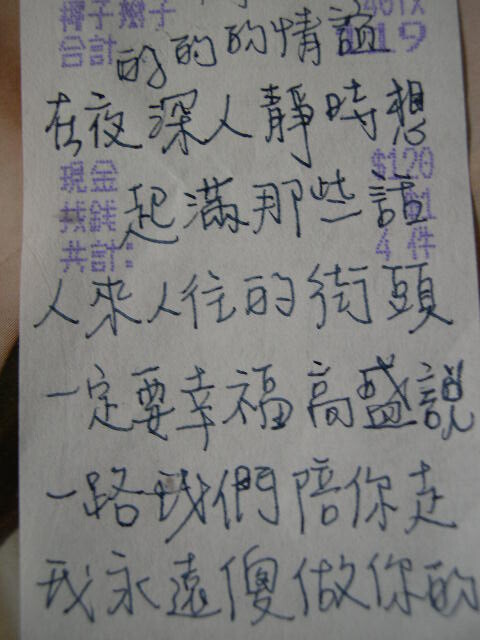 合計 119
的的的情誼
在夜深人靜時想
現金 $120
起滿那些話
找錢 $1
共計: 4 件
人來人往的街頭
一定要幸福高盛說
一路我們陪你走
我永遠傻做你的